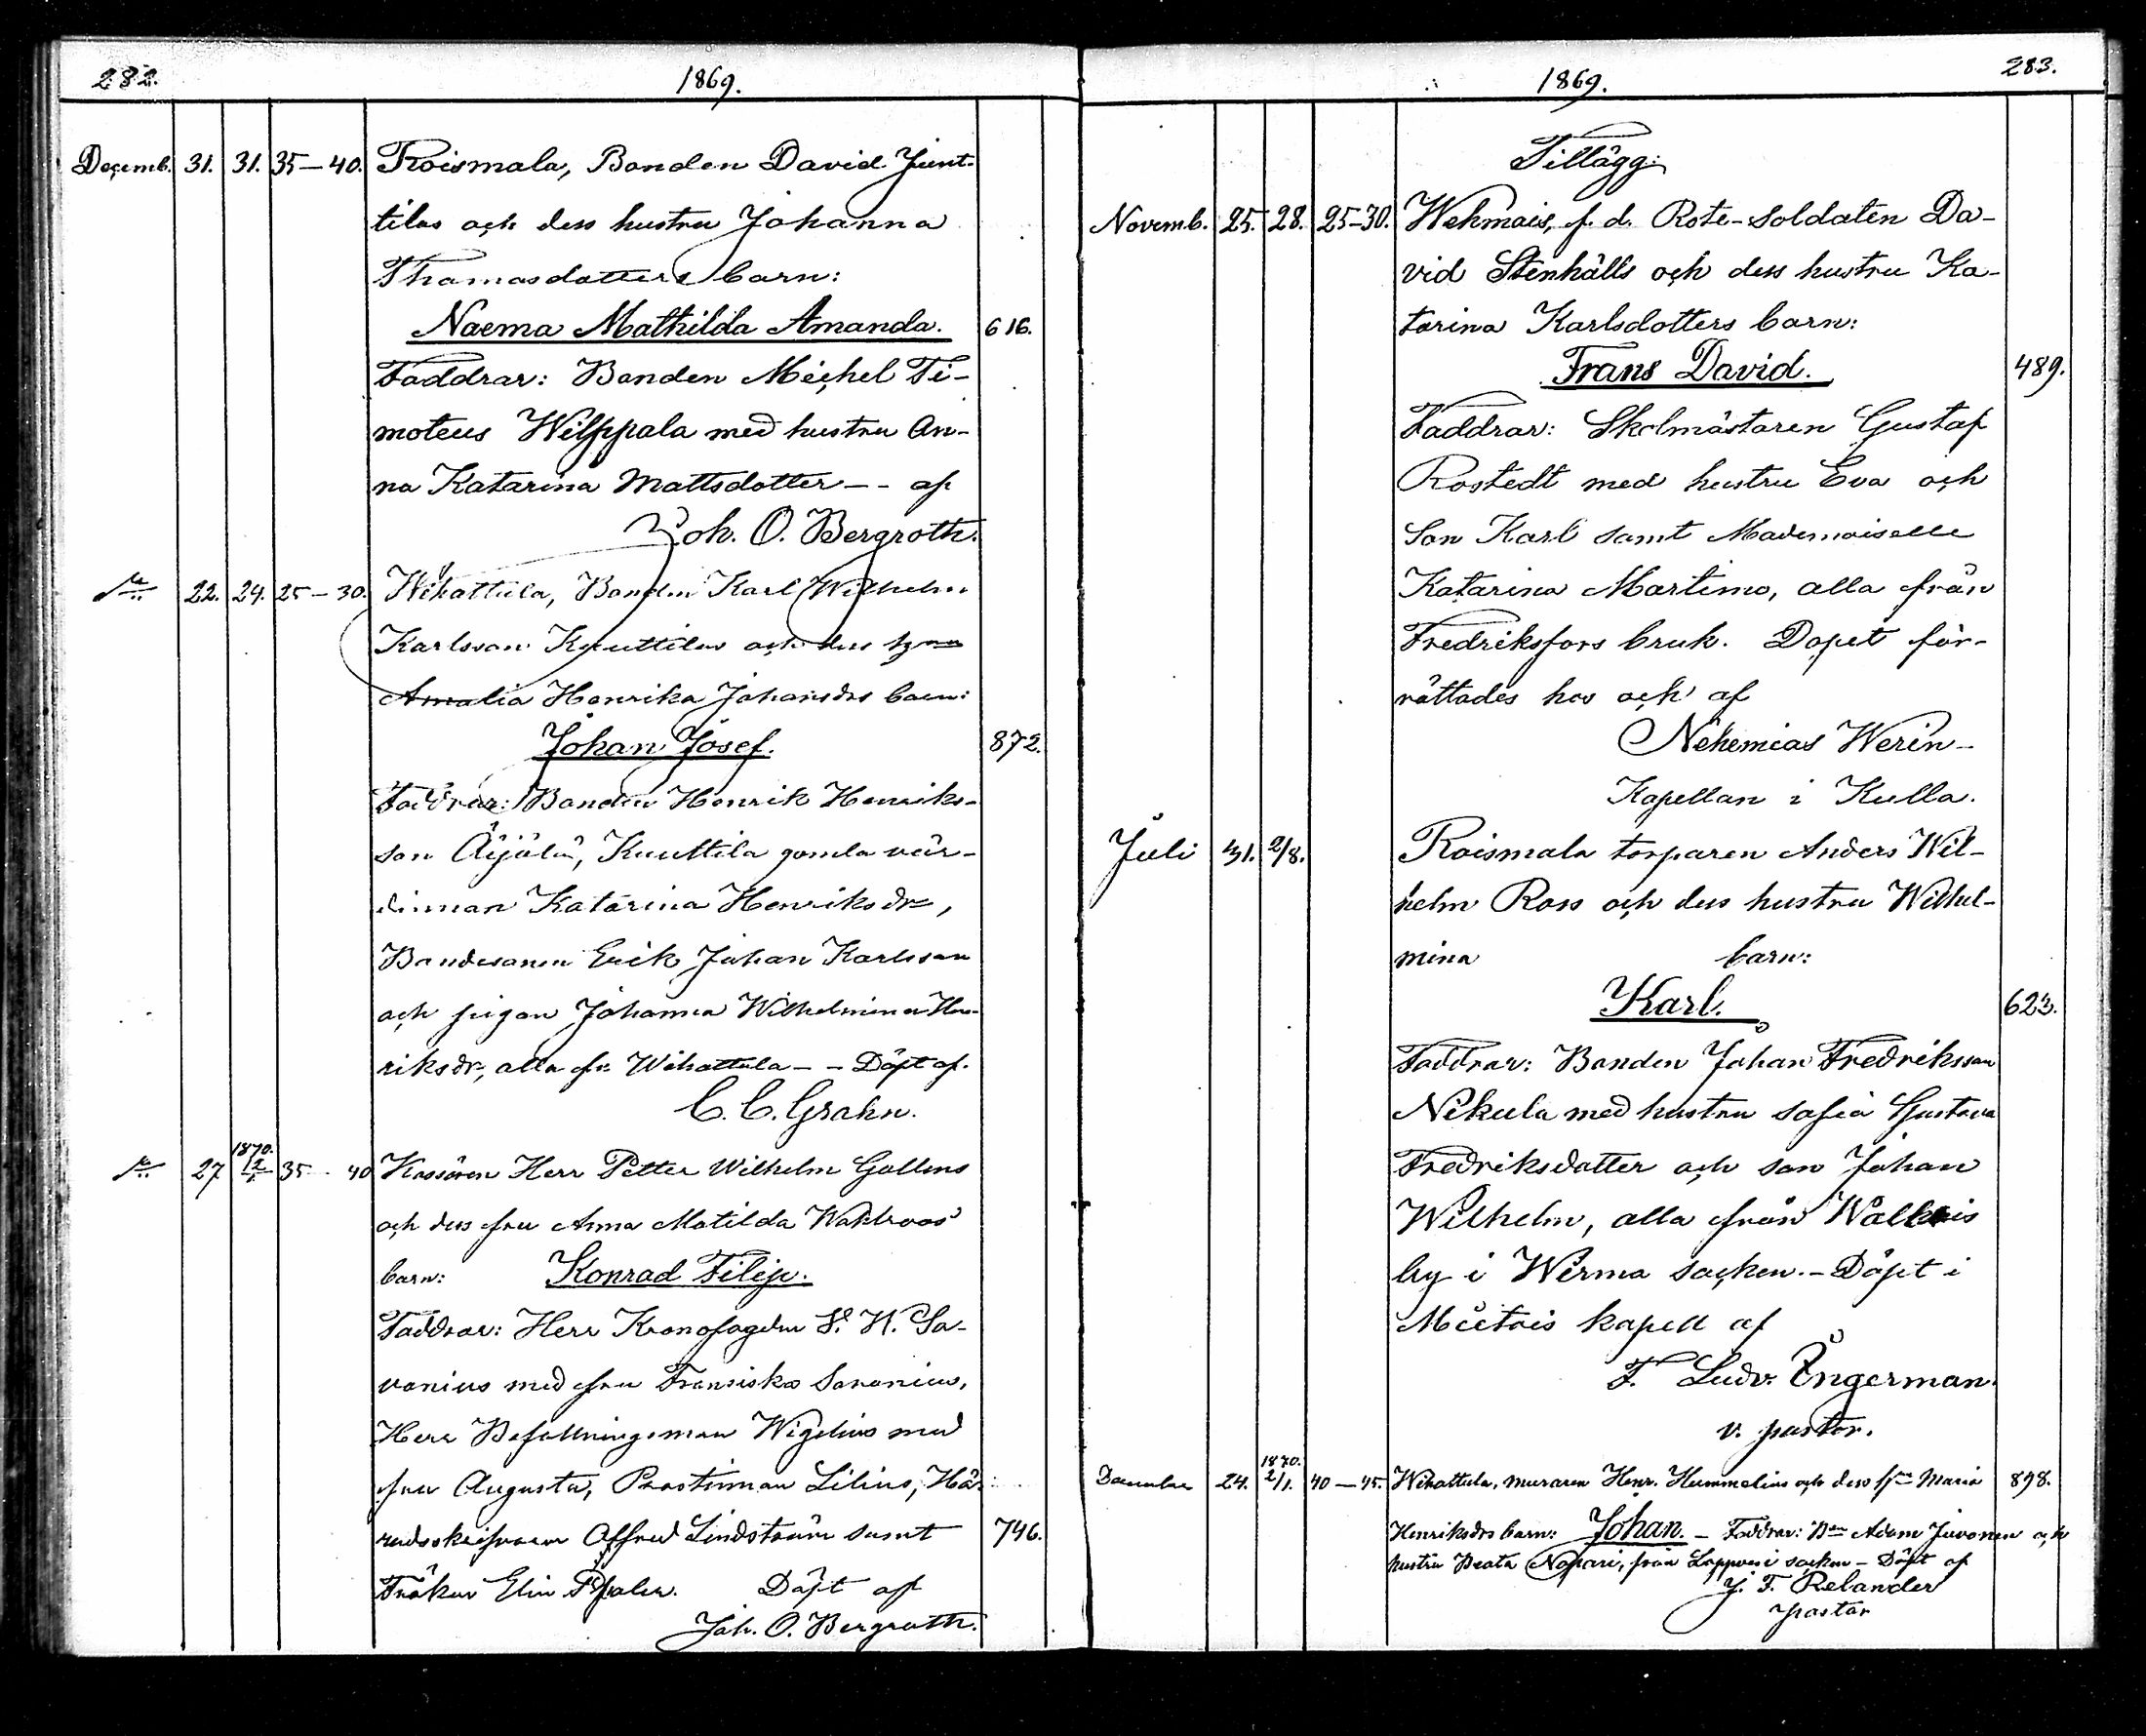 282.
1869.
Decemb. 31. 31. 35–40. Roismala, Bonden David Junt-
tilas och dess hustru Johanna
Thomasdotters barn:
Naema Mathilda Amanda. 616.
Faddrar: Bonden Michel Ti-
moteus Wilppala med hustru An-
na Katarina Mattsdotter -- af
Joh. O. Bergroth.
22. 24. 25–30. Wihattula, Bonden Karl Wilhelm
Karlsson Kuuttilas och dess
Amalia Henrika Johansdrs barn:
Johan Josef. 872.
Faddrar: Bonden Henrik Henriks-
son Äijälä, Kuuttila gamla vär-
dinnan Katarina Henriksdr,
Bondesonen Erik Johan Karlsson
och pigan Johanna Wilhelmina Hen-
riksdr, alla fr. Wihattula -- Döpt af
C. C. Grahn.
27 1870. 12/1 35–40 Kassören Herr Petter Wilhelm Gallens
och dess fru Anna Matilda Wahlroos'
barn: Konrad Filip.
Faddrar: Herr Kronofogden S. W. Sa-
vonius med fru Fransiska Savonius,
Herr Befallningsman Wigelius med
fru Augusta, Prostinnan Lilius, Hä-
radsskrifvaren Alfred Lindström samt 746.
Fröken Elin Döpt af
Joh. O. Bergroth.
283.
1869.
Tillägg:
Novemb. 25. 28. 25–30. Wehmais, f. d. Rote-Soldaten Da-
vid Stenhälls och dess hustru Ka-
tarina Karlsdotters barn:
Frans David. 489.
Faddrar: Skolmästaren Gustaf
Rostedt med hustru Eva och
Son Karl samt Mademoiselle
Katarina Martimo, alla från
Fredriksfors bruk. Dopet för-
rättades hos och af
Nehemias Werin-
Kapellan i Kulla.
Juli 31. 2/8. Roismala torparen Anders Wil-
helm Ross och dess hustru Wilhel-
mina barn:
Karl. 623.
Faddrar: Bonden Johan Fredriksson
Nikula med hustru Sofia Gustava
Fredriksdotter och son Johan
Wilhelm, alla från
by i Wirmo socken. – Döpt i
Mietois kapell af
F. Ludv. Ingerman.
v. pastor.
December 24. 1870. 2/1. 40–45. Wihattula, muraren Henr. Hummelins och dess Maria 898.
Henriksdrs barn: Johan. – Faddrar: Adam Juvonen och
hustru Beata Nopari, från Lappvesi socken – Döpt af
J. F. Relander
pastor